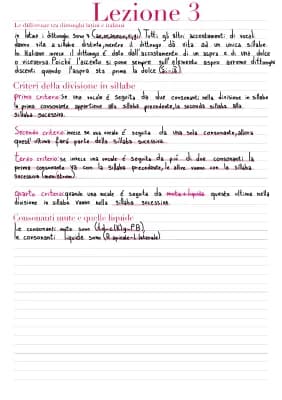 Lezione 3
Le differenze tra dittonghi latini e italiani
in latino i dittonghi sono 7 Tutti gli altri accostamenti di vocali
danno vita a sillabe distinte, mentre il dittongo dà vita ad un unica sillaba.
In italiano invece il dittongo è dato dall'accostamento di un aspra e di una dolce
o viceversa. Poiché l'accento si pone sempre sull'elemento aspro avremo dittonghi
discenti quando l'aspra sta prima la dolce
Criteri della divisione in sillabe
primo criterio: Se una vocale è seguita da due consonanti nella divisione in sillabe
la prima consonante appartiene alla sillaba precedente, la seconda sillaba alla
sillaba sucessiva.
Secondo criterio: invece se una vocale è seguita da una sola consonante, allora
quest'ultima farà parte della sillaba sucessiva.
terzo criterio: se invece una vocale è seguita da più di due consonanti la
prima consonante va con la sillaba precedente, le altre vanno con la sillaba
sucessiva
quarto criterio: quando una vocale è seguita da muta+liquida queste ultime nella
divisione in sillabe vanno nella sillaba sucessiva.
Consonanti mute e quelle liquide
Le consonanti mute sono
le consonanti liquide sono